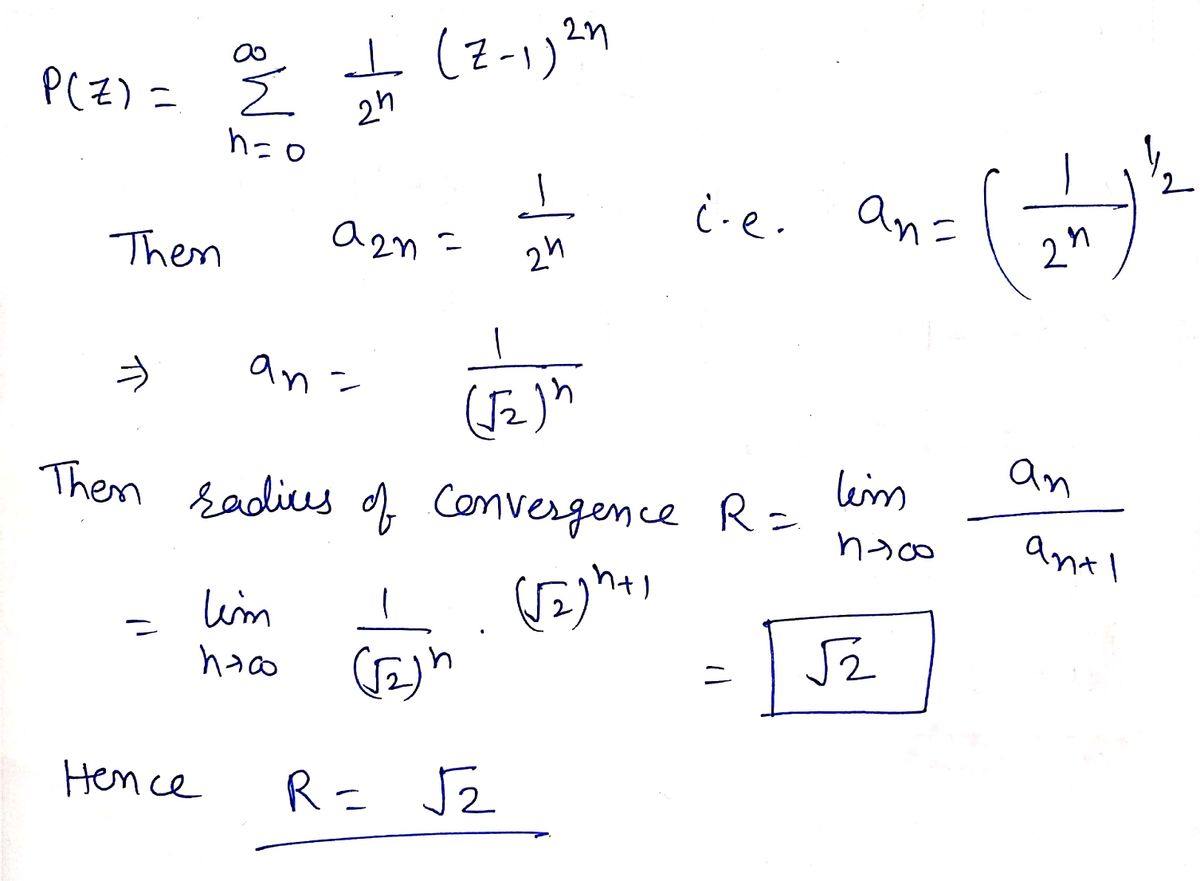 P(Z) = ∞∑n=0 1/2ⁿ (Z-1)²ⁿ
Then a₂ₙ = 1/2ⁿ i.e. aₙ = (1/2ⁿ)^1/2
⇒ aₙ = 1/(√2)ⁿ
Then radius of convergence R = lim n→∞ aₙ/aₙ₊₁
= lim n→∞ 1/(√2)ⁿ . (√2)ⁿ⁺¹ = √2
Hence R = √2